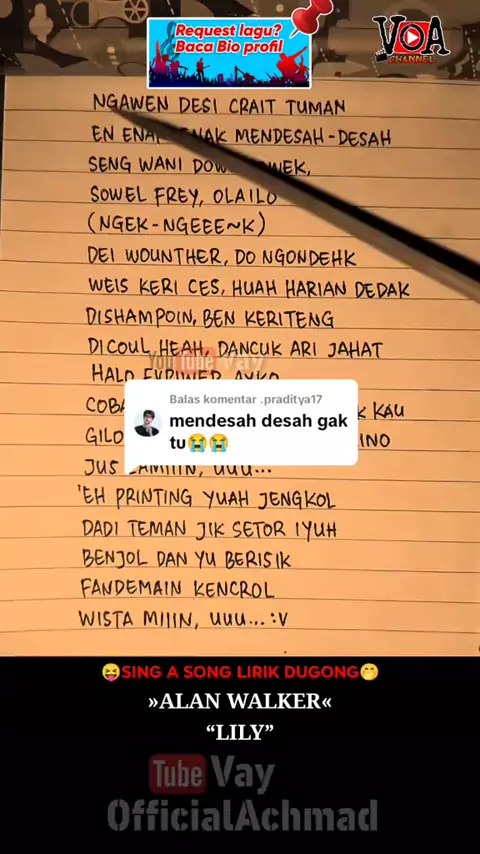 Request lagu?
Baca Bio profil
VOA
CHANNEL
NGAWEN DESI CRAIT TUMAN
EN MENDESAH-DESAH
SENG WANI
SOWEL FREY, OLAILO
(NGEK-NGEEE~K)
DEI WOUNTHER, DO NGONDEHK
WEIS KERI CES, HUAH HARIAN DEDAK
DISHAMPOIN, BEN KERITENG
DICOUL HEAH, DANCUK ARI JAHAT
YouTube Vay
HALO
Balas komentar .praditya17
mendesah desah gak
tu😭😭
KAU
JUS UUU...
'EH PRINTING YUAH JENGKOL
DADI TEMAN JIK SETOR IYUH
BENJOL DAN YU BERISIK
FANDEMAIN KENCROL
WISTA MIIIN, UUU... :V
😝SING A SONG LIRIK DUGONG🤭
»ALAN WALKER«
“LILY”
Tube Vay
OfficialAchmad